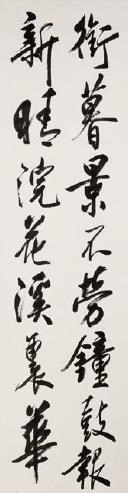 衔暮景不劳钟鼓報
新晴浣花溪裏華